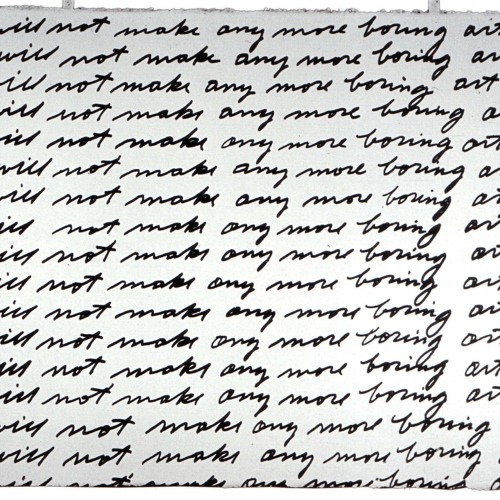 will not make any more boring art
will not make any more boring art
will not make any more boring art
will not make any more boring a
will not make any more boring art
will not make any more boring art
will not make any more boring art
will not make any more boring art
will not make any more boring art
will not make any more boring art
will not make any more boring art
will not make any more boring art
will not make any more boring art
will not make any more boring art
will not make any more boring
will not make any more boring
will not make any more boring